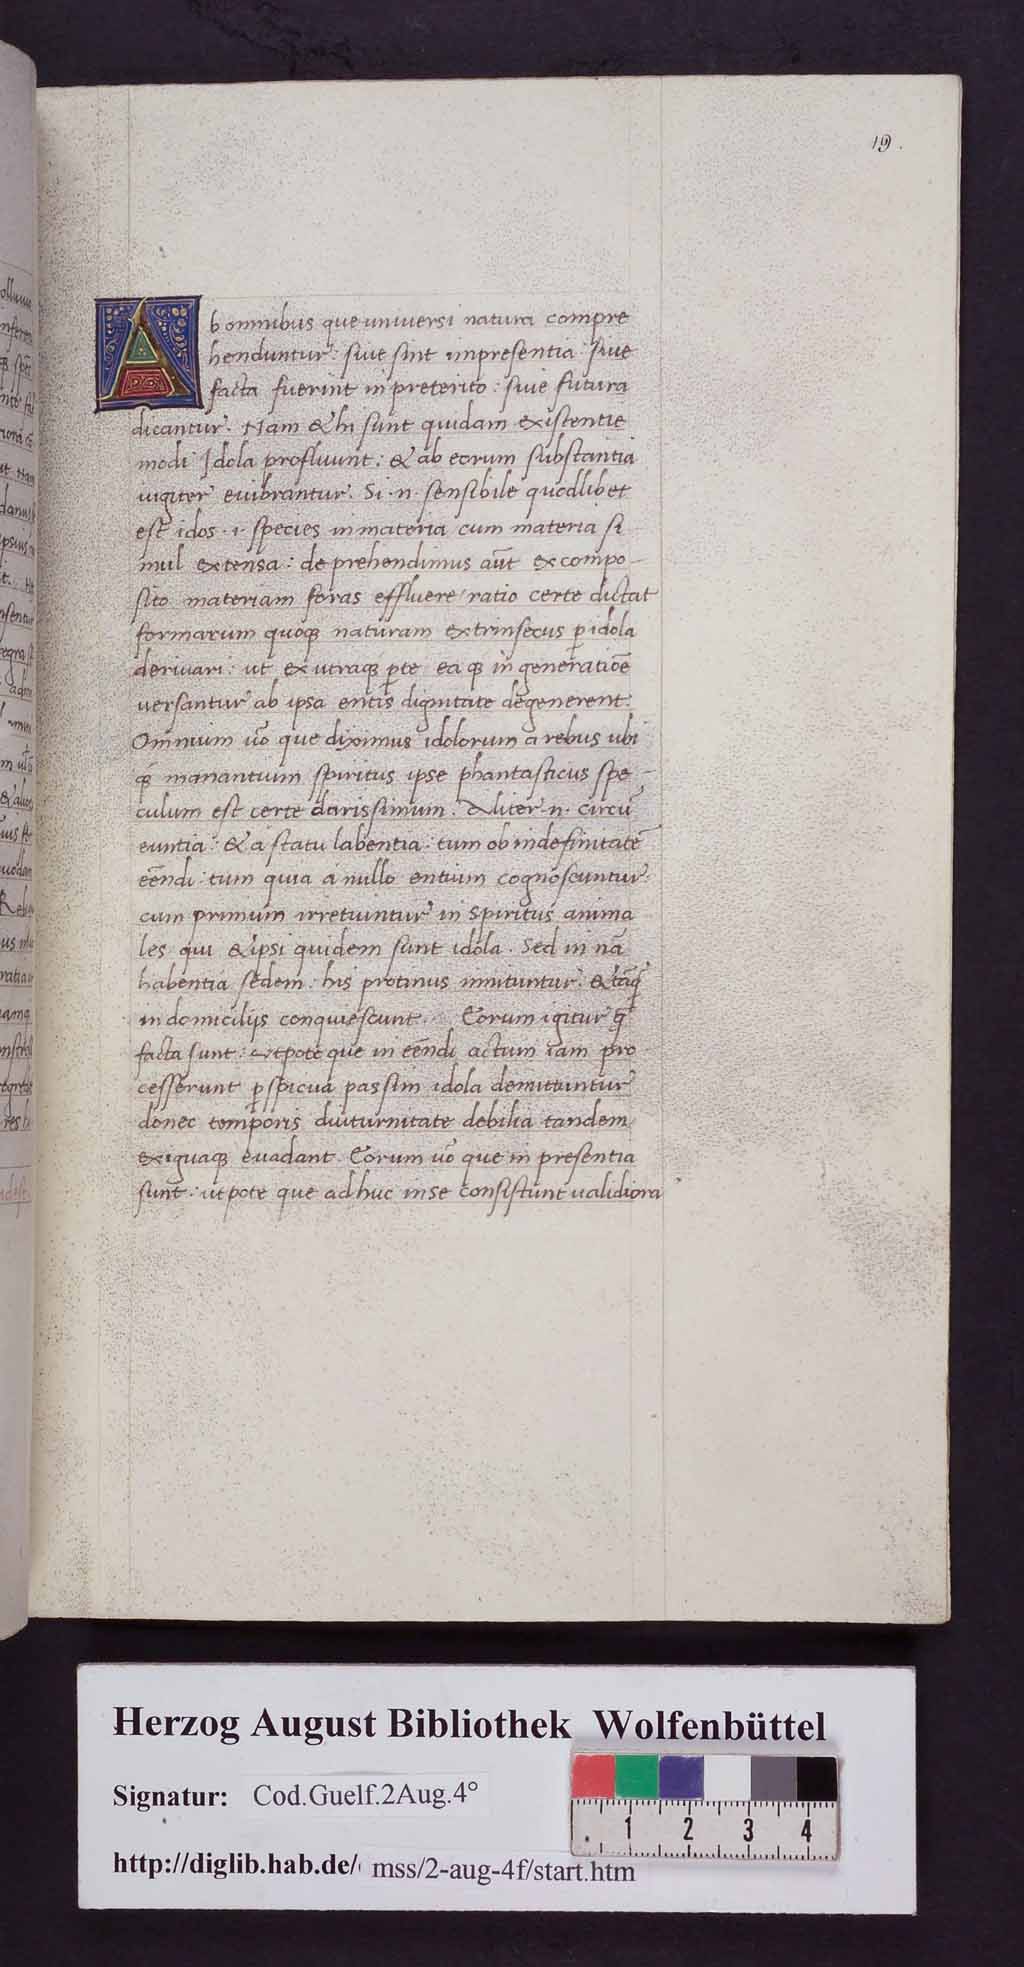 19.
Ab omnibus que universi natura compre
henduntur: sive sint inpresentia: sive
facta fuerint in preterito: sive futura
dicantur. Nam & hi sunt quidam existentie
modi: Idola profluunt: & ab eorum substantia
uigiter euibrantur. Si .n. sensibile quodlibet
est idos .i. species in materia cum materia si
mul extensa: deprehendimus aūt ex compo-
sito materiam foras effluere: ratio certe dictat
formarum quoq̨ naturam extrinsecus p̱ idola
derivari: ut ex utraq̨ p̱te ea q̨ in generatiōe
versantur ab ipsa entis dignitate degenerent.
Omnium ūo que diximus idolorum a rebus ubi
q̨ manantium spiritus ipse phantasticus spe-
culum est certe clarissimum. Aliter .n. circū
euntia: & a statu labentia: tum ob indefinitatē
eēndi: tum quia a nullo entium cognoscuntur:
cum primum irretiuntur in spiritus anima
les qui & ipsi quidem sunt idola. Sed in nā
habentia sedem: his protinus innituntur: & tāq̨
in domicilijs conquiescunt. Eorum igitur q̄
facta sunt: utpote que in eēndi actum iam pro
cesserunt p̱spicua passim idola demittuntur
donec temporis diuturnitate debilia tandem
exiguaq̨ euadant. Eorum ūo que in presentia
sunt: utpote que adhuc in se consistunt validiora
Herzog August Bibliothek Wolfenbüttel
Signatur: Cod.Guelf.2Aug.4°
http://diglib.hab.de/ mss/2-aug-4f/start.htm
1 2 3 4